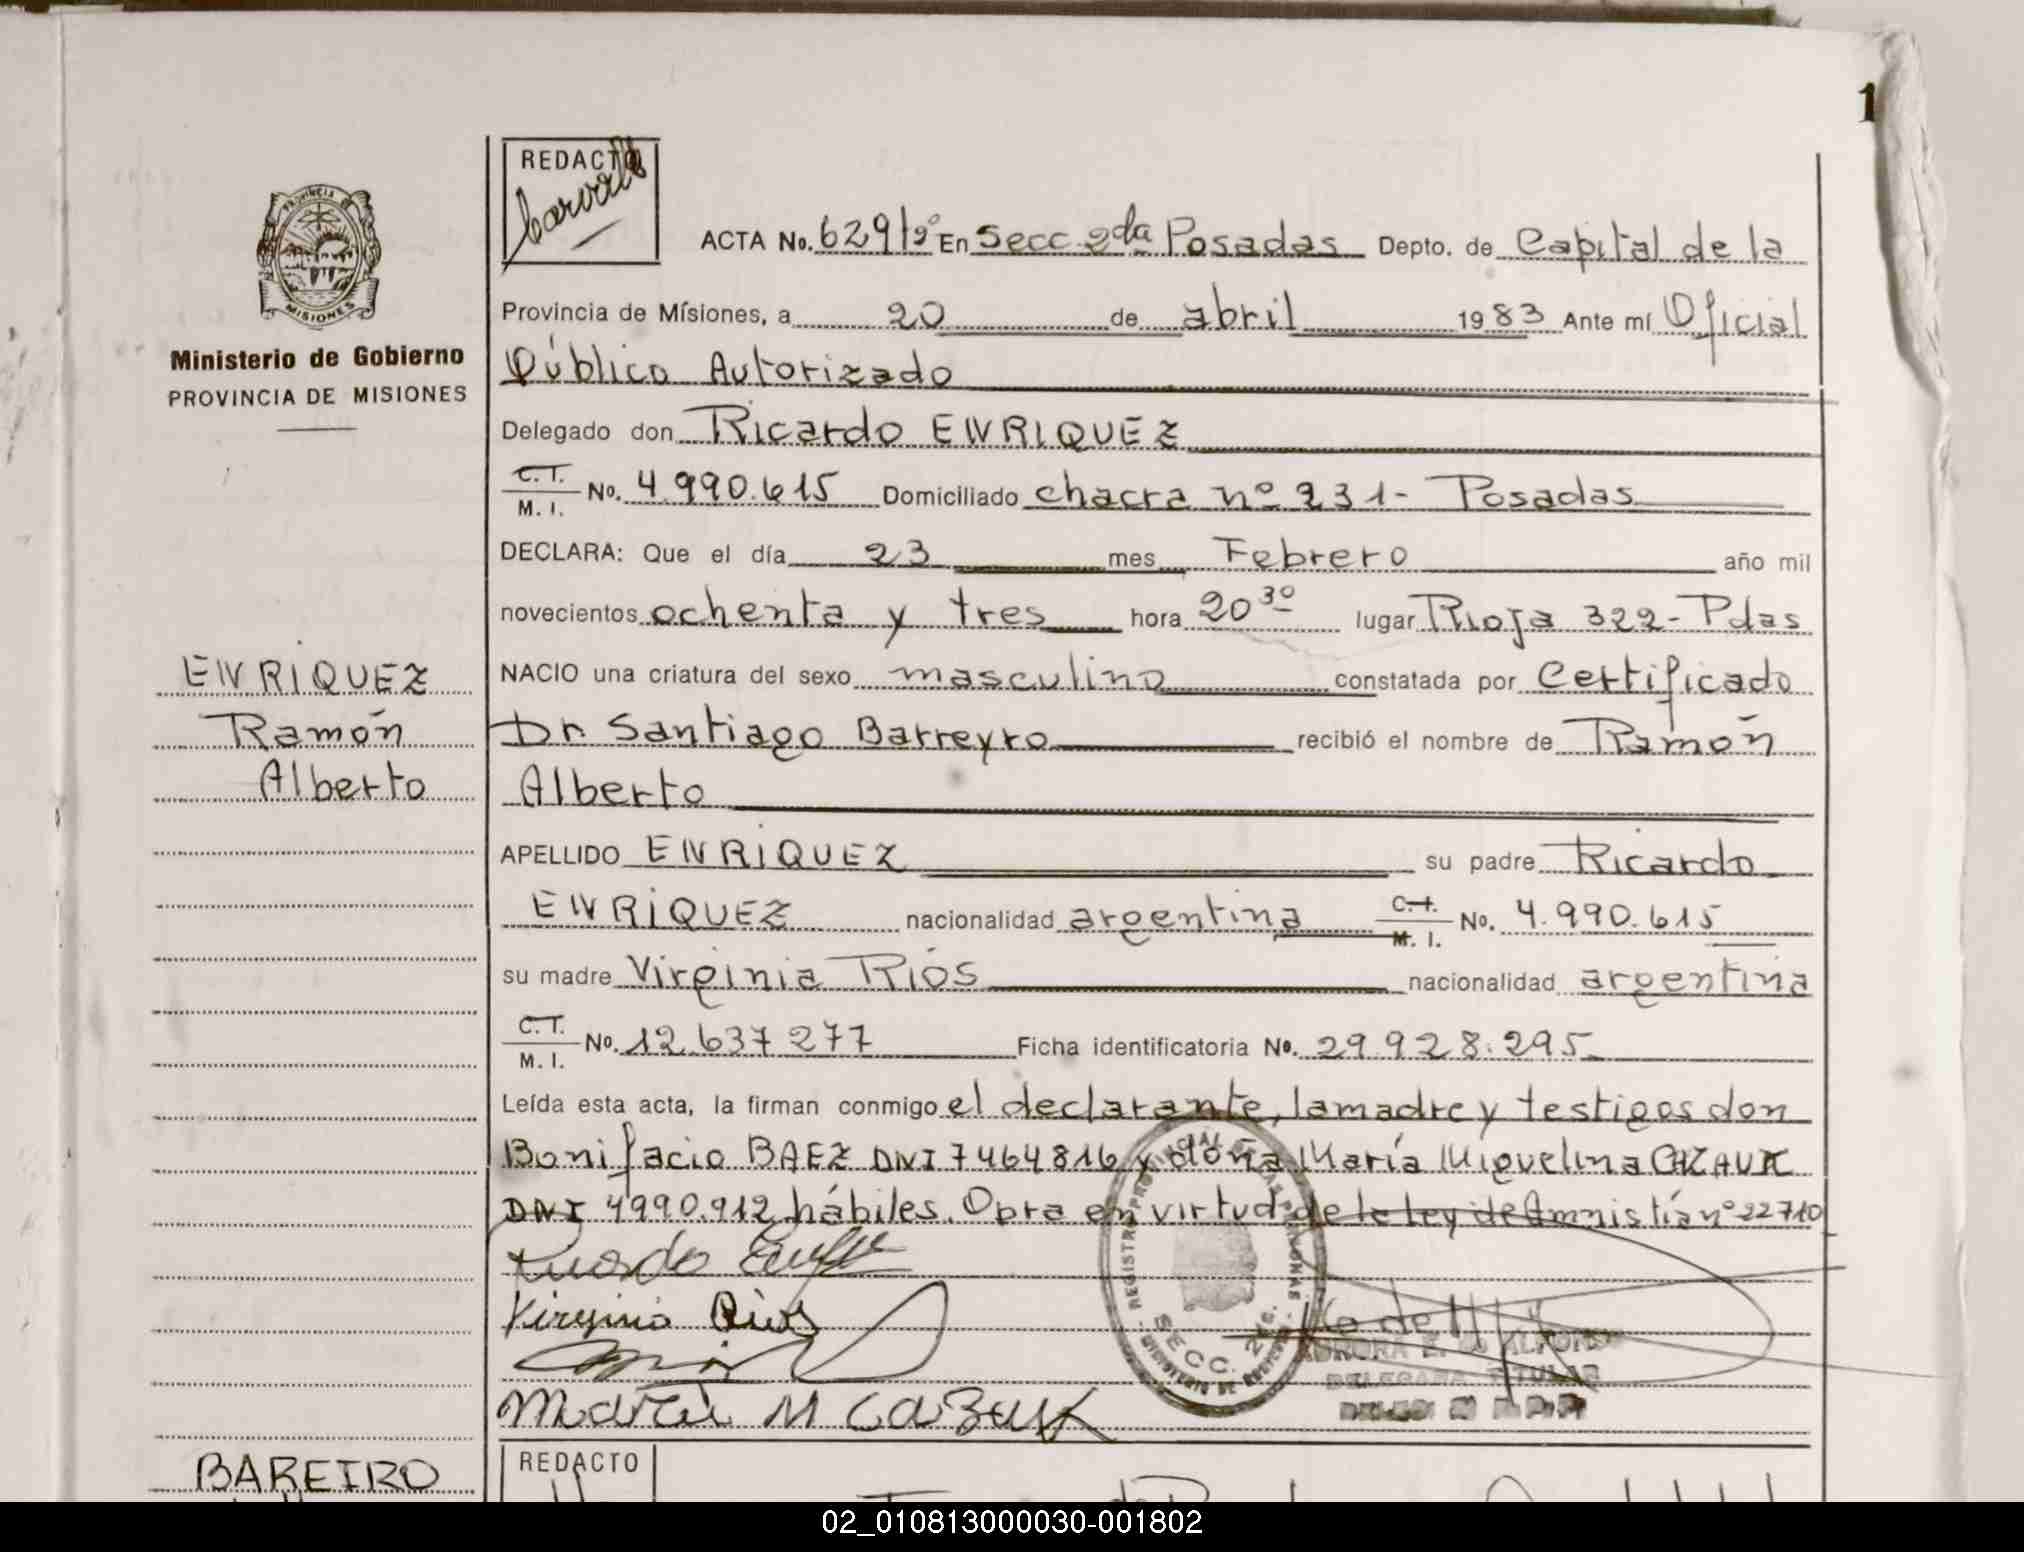 1
REDACTO
ACTA No. 629 1º En Secc. 2da Posadas Depto. de Capital de la
Provincia de Mísiones, a 20 de abril 1983 Ante mí Oficial
Público Autorizado
Delegado don Ricardo ENRIQUEZ
C.T. M. I. No. 4.990.615 Domiciliado chacra nº 231- Posadas
DECLARA: Que el día 23 mes Febrero año mil
novecientos ochenta y tres hora 20 30 lugar Rioja 322-Pdas
NACIO una criatura del sexo masculino constatada por Certificado
Dr. Santiago Barreyro recibió el nombre de Ramón
Alberto
APELLIDO ENRIQUEZ su padre Ricardo
ENRIQUEZ nacionalidad argentina C.T. M. I. No. 4.990.615
su madre Virginia Ríos nacionalidad argentina
C.T. M. I. No. 12.637 277 Ficha identificatoria No. 29.928.295
Leída esta acta, la firman conmigo el declarante, la madre y testigos don
Bonifacio BAEZ DNI 7464816 y doña María Miguelina CAZAUX
DNI 4990.912 hábiles. Obra en virtud de la ley de Amnistía nº 22710
Ricardo
Virginia Ríos
María M Cazaux
REGISTRO PROVINCIAL DE LAS PERSONAS
SECC. 2da.
MINISTERIO DE GOBIERNO
AURORA E. de ALFONSO
DELEGADA TITULAR
PROVINCIA
MISIONES
Ministerio de Gobierno
PROVINCIA DE MISIONES
ENRIQUEZ
Ramón
Alberto
BAREIRO
REDACTO
02_010813000030-001802